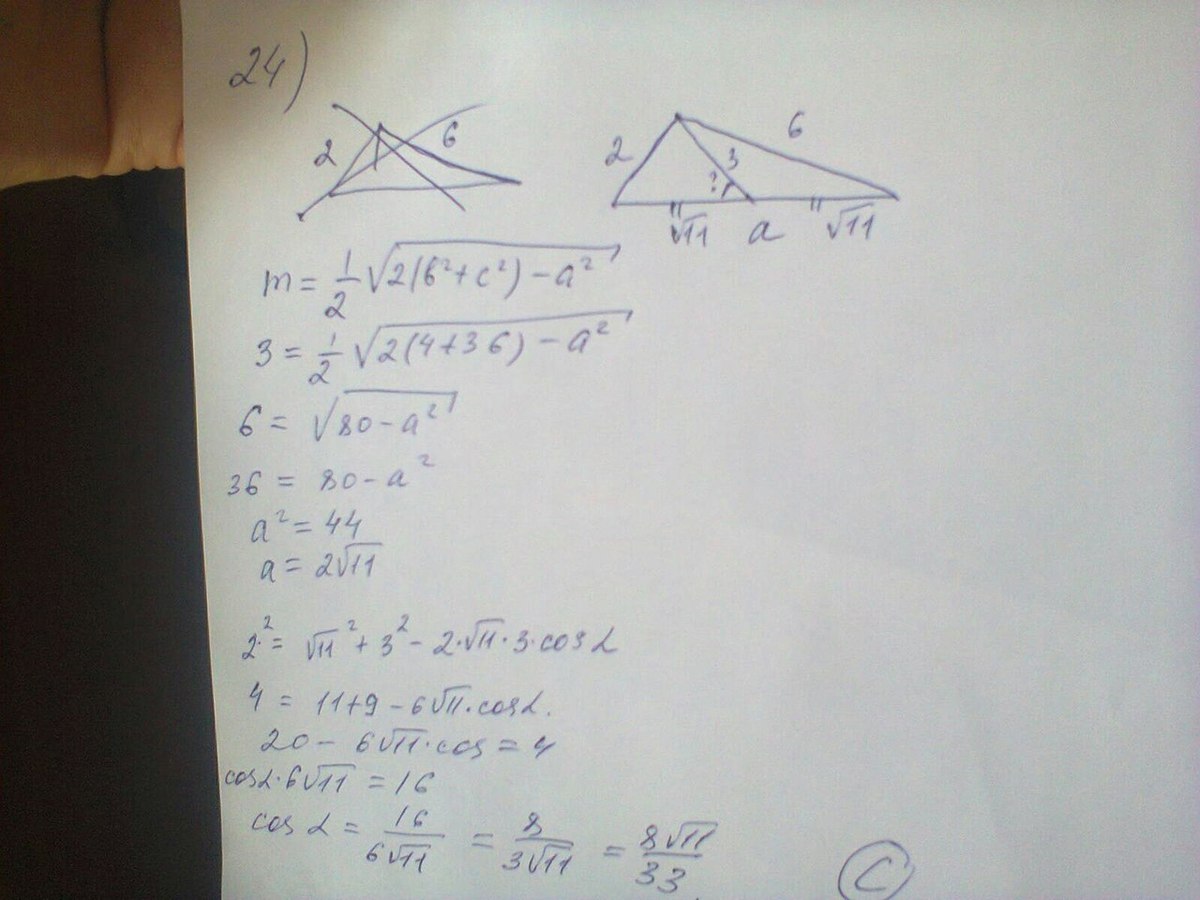 24)
2 6
2 3 6
?
√11 a √11
m = 1/2 √2(b²+c²) – a²
3 = 1/2 √2(4+36) – a²
6 = √80 – a²
36 = 80 – a²
a² = 44
a = 2√11
2² = √11² + 3² – 2·√11·3·cos α
4 = 11+9 – 6√11·cos α.
20 – 6√11·cos = 4
cos α·6√11 = 16
cos α = 16/6√11 = 8/3√11 = 8√11/33.
C